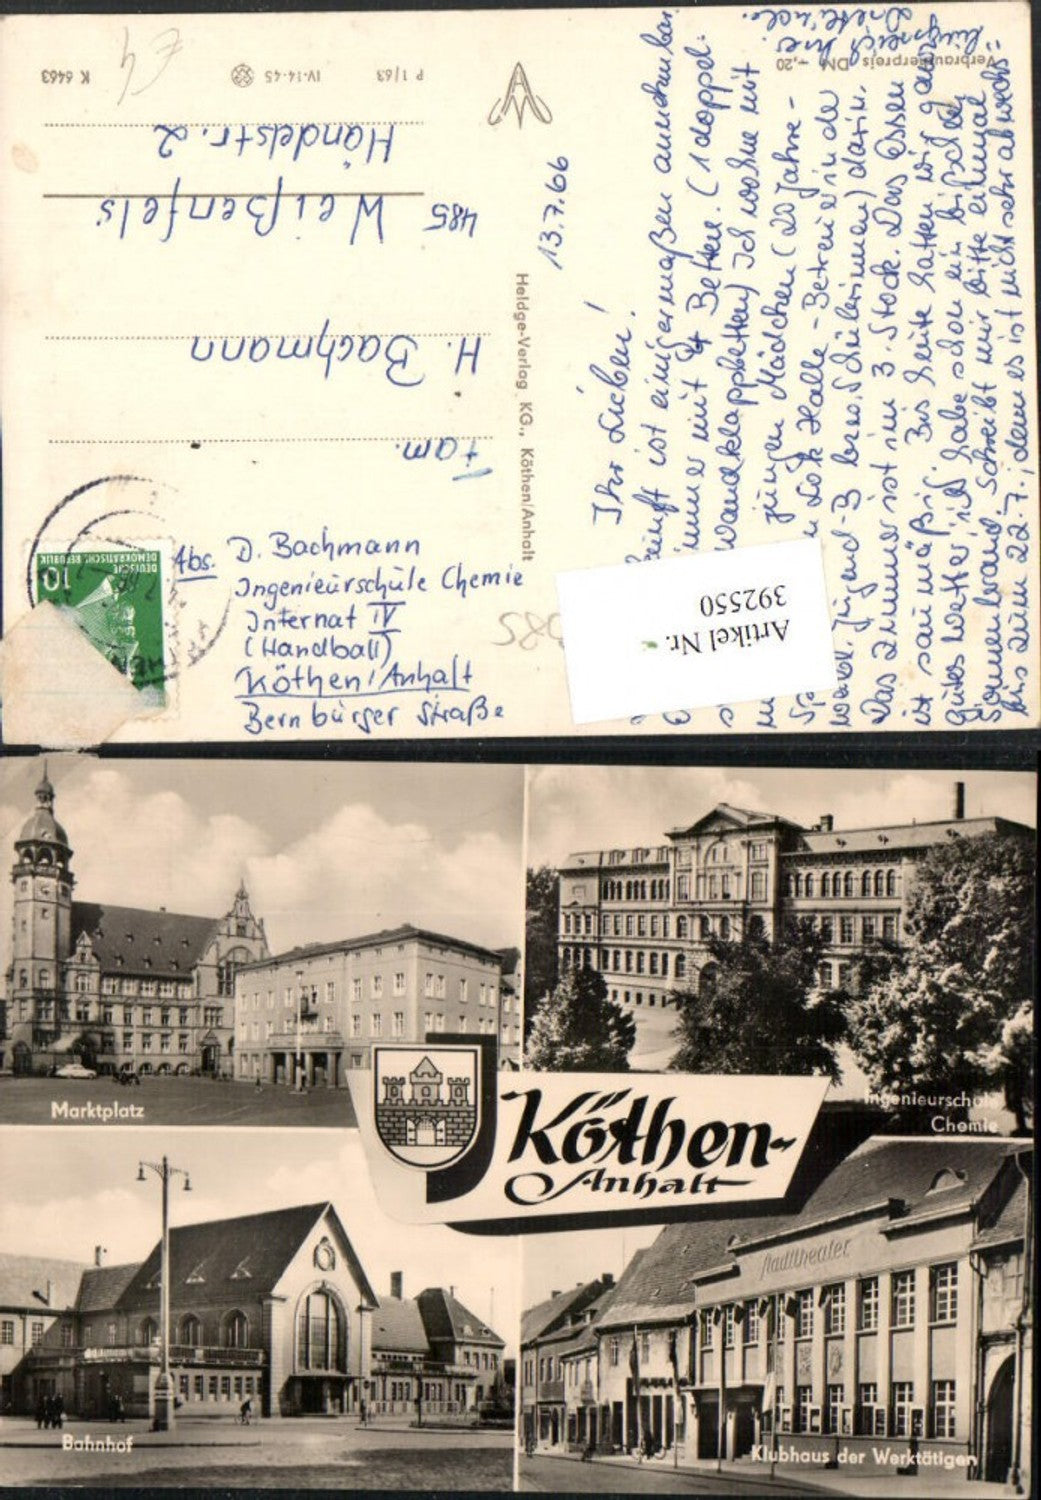 K 6463
IV-14-45
P 1/63
Verbraucherpreis DM -,20
Heldge-Verlag KG., Köthen/Anhalt
DEUTSCHE
DEMOKRATISCHE REPUBLIK
10
Fam.
H. Bachmann
485 Weißenfels
Händelstr. 2
Abs. D. Bachmann
Ingenieurschule Chemie
Internat IV
(Handball)
Köthen/Anhalt
Bernburger Straße
13.7.66
Ihr Lieben!
ist einigermaßen annehmbar.
mit 4 Betten. (1 Doppel-
wandklappbetten) Ich wohne mit
jungen Mädchen (20 Jahre-
Lok Halle-Betreuerin der
weibl. Jugend-B bzw. Schülerinnen) darin.
Das Zimmer ist im 3. Stock. Das Essen
ist saumäßig. Bis heute hatten wir
gutes Wetter, ich habe schon ein bißchen
Sonnenbrand. Schreibt mir bitte einmal
bis zum 22.7., denn es ist nicht sehr abwechs-
lungsreich hier.
Artikel Nr.
392550
Marktplatz
Ingenieurschule
Chemie
Köthen-
Anhalt
Stadttheater
Bahnhof
Klubhaus der Werktätigen